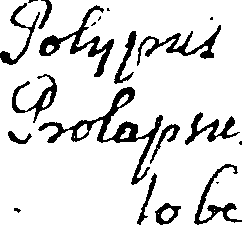 Polypus
Prolapsu
to be